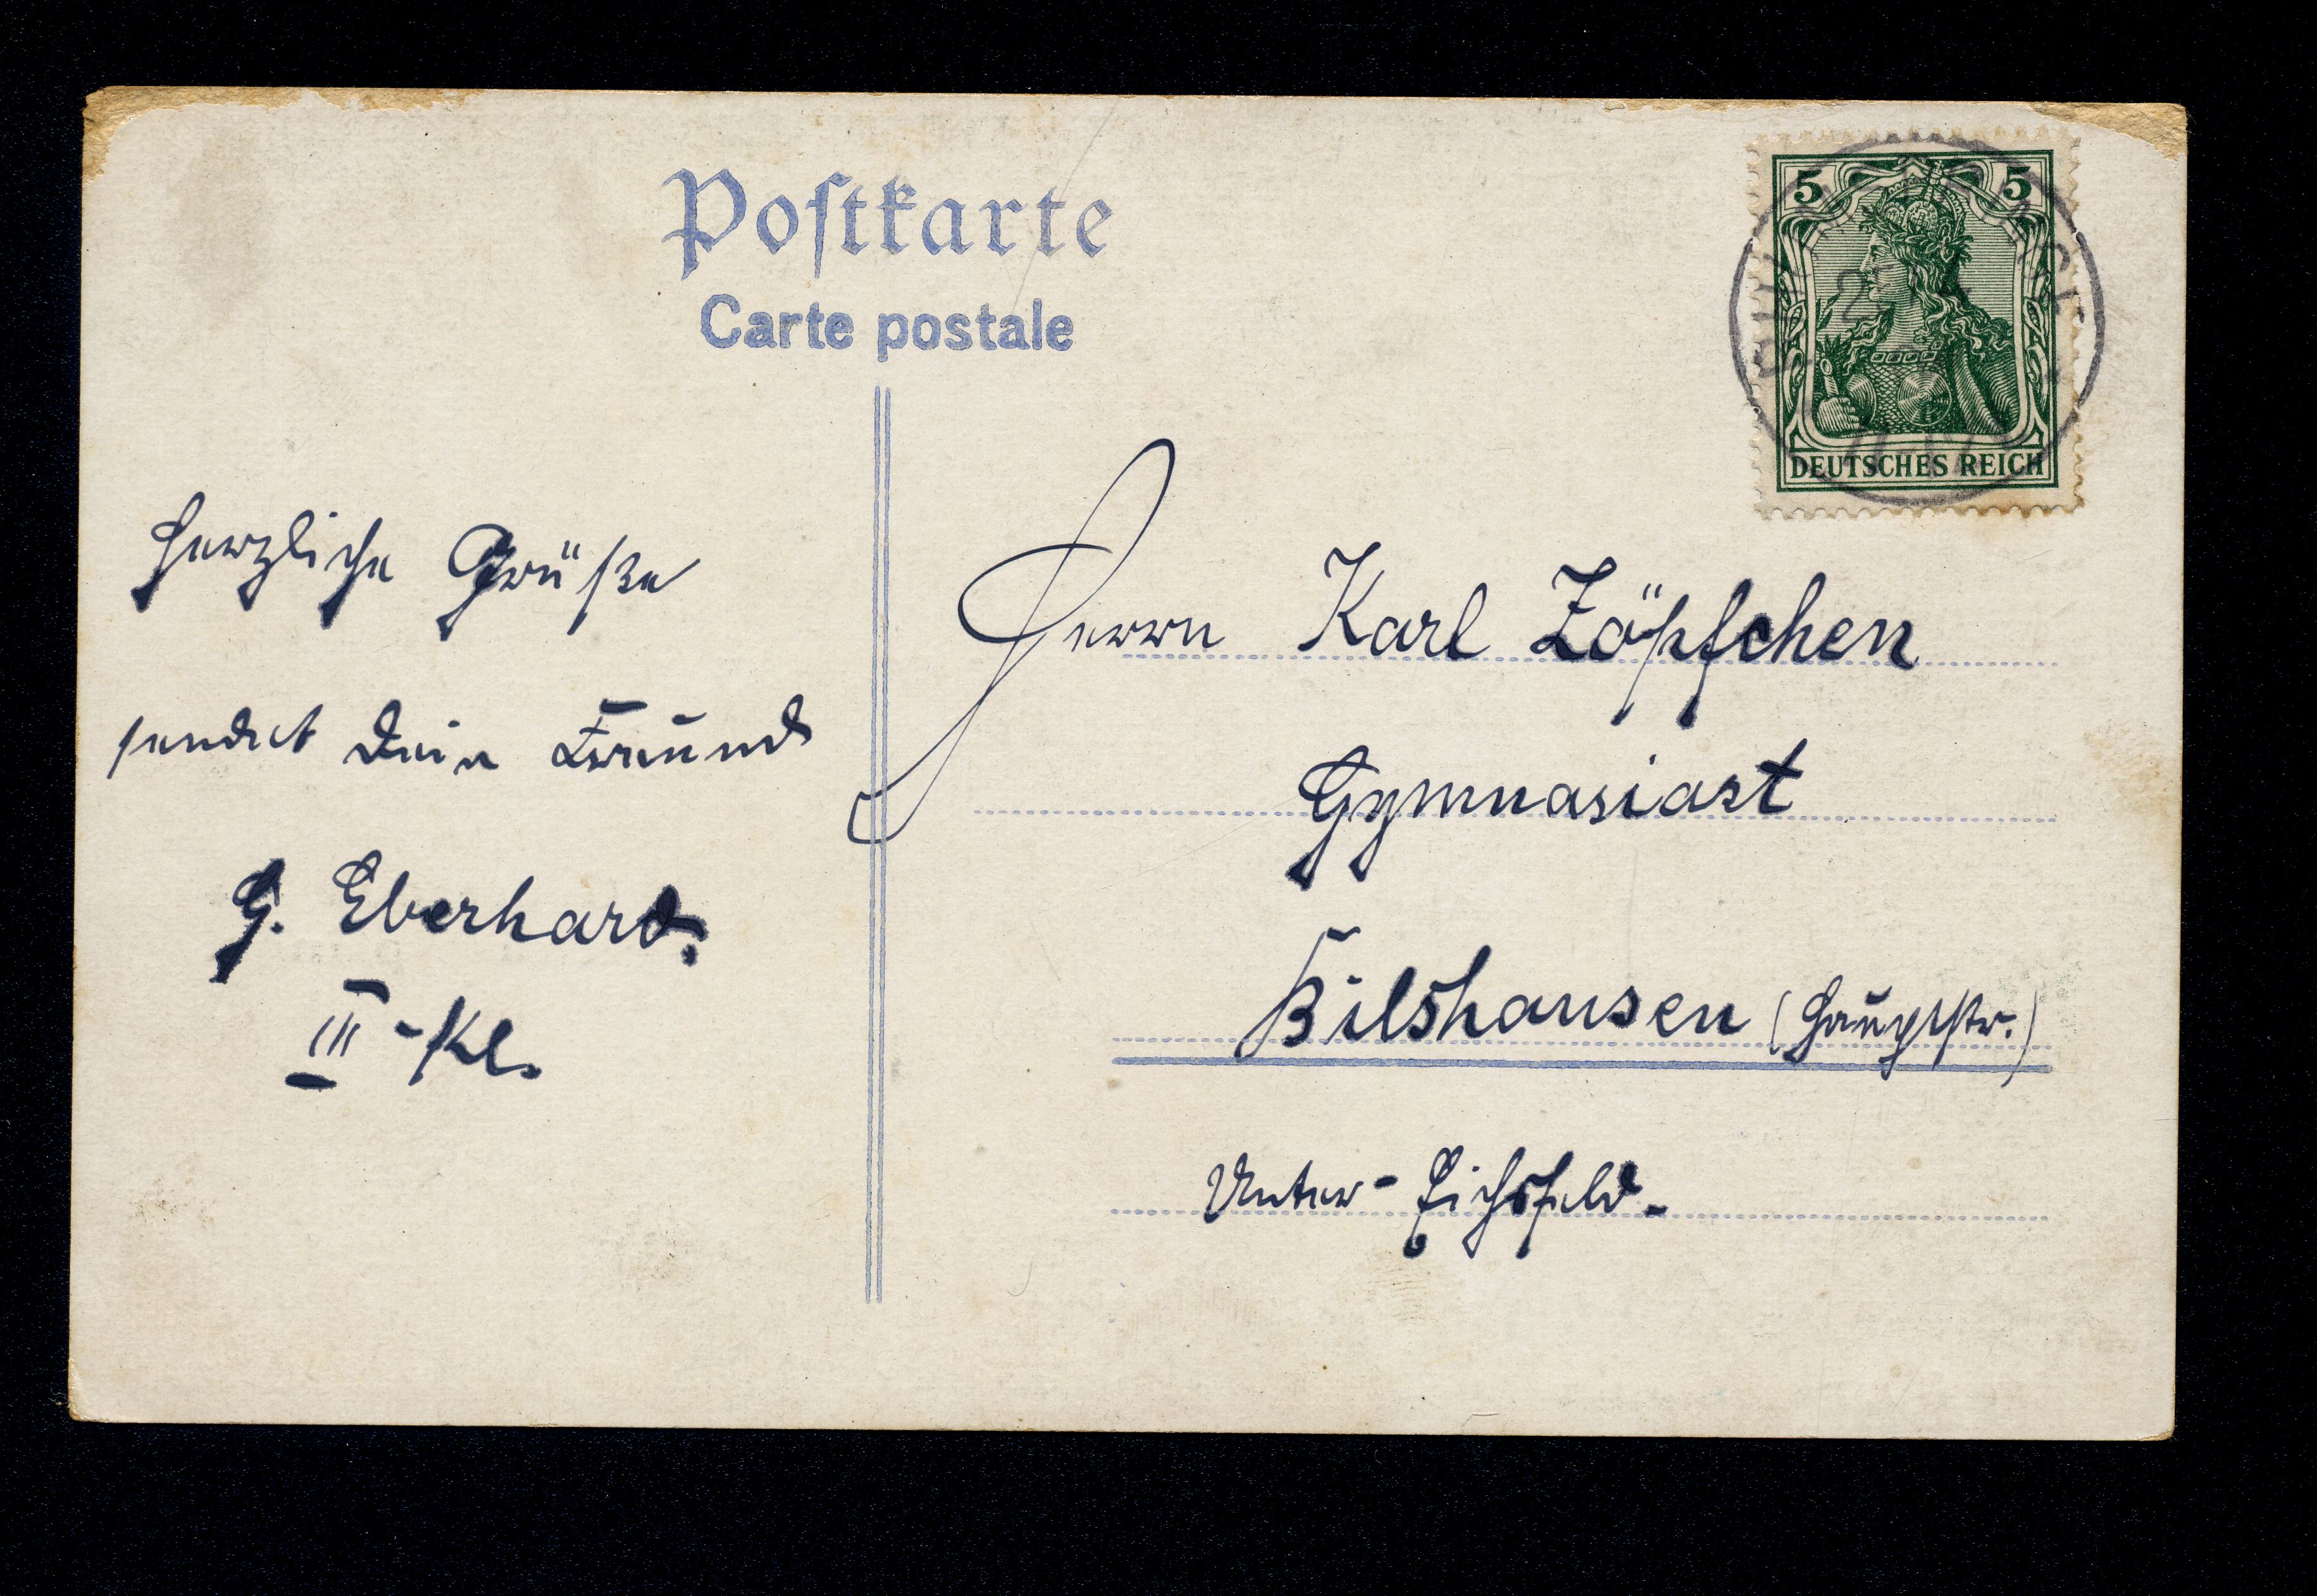 Postkarte
Carte postale
5 5
DEUTSCHES REICH
Herzliche Grüße
sendet Dein Freund
G. Eberhard.
III-Kl.
Herrn Karl Zöpfchen
Gymnasiast
Bilshausen (Hauptstr.)
Unter-Eichsfeld.